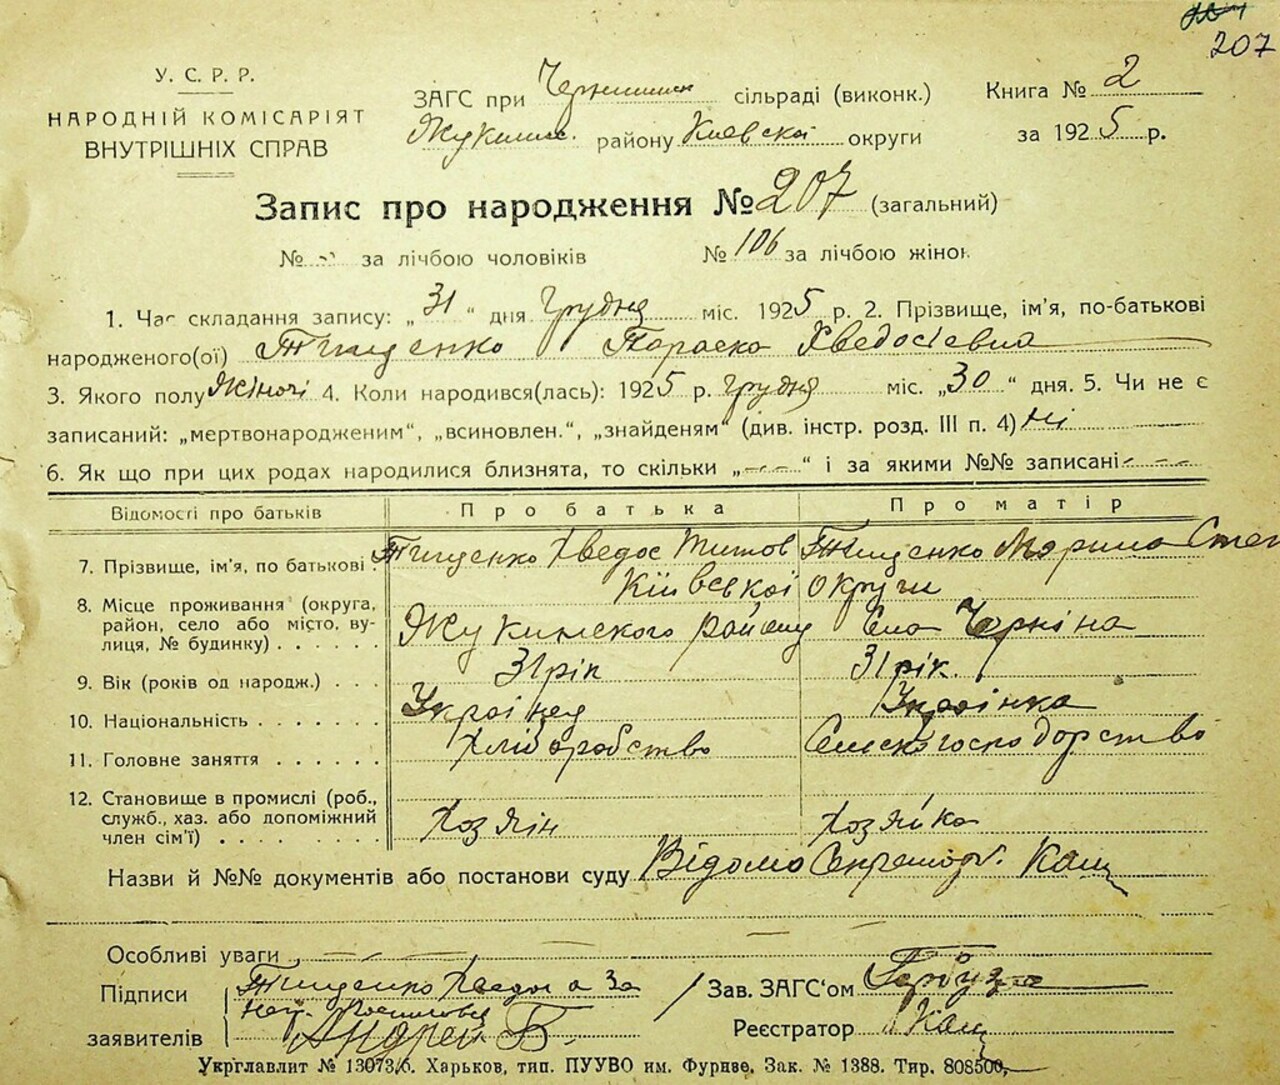 207
У. С. Р. Р.
НАРОДНІЙ КОМІСАРІЯТ
ВНУТРІШНІХ СПРАВ
ЗАГС при сільраді (виконк.)
Жукинс. району Киевской округи
Книга № 2
за 1925 р.
Запис про народження № 207 (загальний)
№ за лічбою чоловіків № 106 за лічбою жінок
1. Час складання запису: „31“ дня Грудня міс. 1925 р. 2. Прізвище, ім'я, по-батькові
народженого(ої) Тищенко Параска Хведосіевна
3. Якого полу Жіночі 4. Коли народився(лась): 1925 р. Грудня міс. „30“ дня. 5. Чи не є
записаний: „мертвонародженим“, „всиновлен.“, „знайденям“ (див. інстр. розд. III п. 4) Ні
6. Як що при цих родах народилися близнята, то скільки „---“ і за якими №№ записані - - -
Відомості про батьків Про батька Про матір
7. Прізвище, ім'я, по батькові . Тищенко Хведос Титов Тищенко Марина Степ
Київської округи
8. Місце проживання (округа,
район, село або місто, ву-
лиця, № будинку) . . . . . . Жукинского району Село Черніна
9. Вік (років од народж.) . . . 31 рік 31 рік.
10. Національність . . . . . . . Украінец Украінка
11. Головне заняття . . . . . . Хліборобство Сельско господарство
12. Становище в промислі (роб.,
служб., хаз. або допоміжний
член сім'ї) . . . . . . . . Хозяін Хозяйка
Назви й №№ документів або постанови суду Відомо Секретарю. Кащ
Особливі уваги
Підписи
заявителів
Тищенко Хведос а За
Андрей Б
Зав. ЗАГС'ом Гарбуза
Реєстратор Кащ
Укрглавлит № 13073/б. Харьков, тип. ПУУВО им. Фрунзе. Зак. № 1388. Тир. 808500.